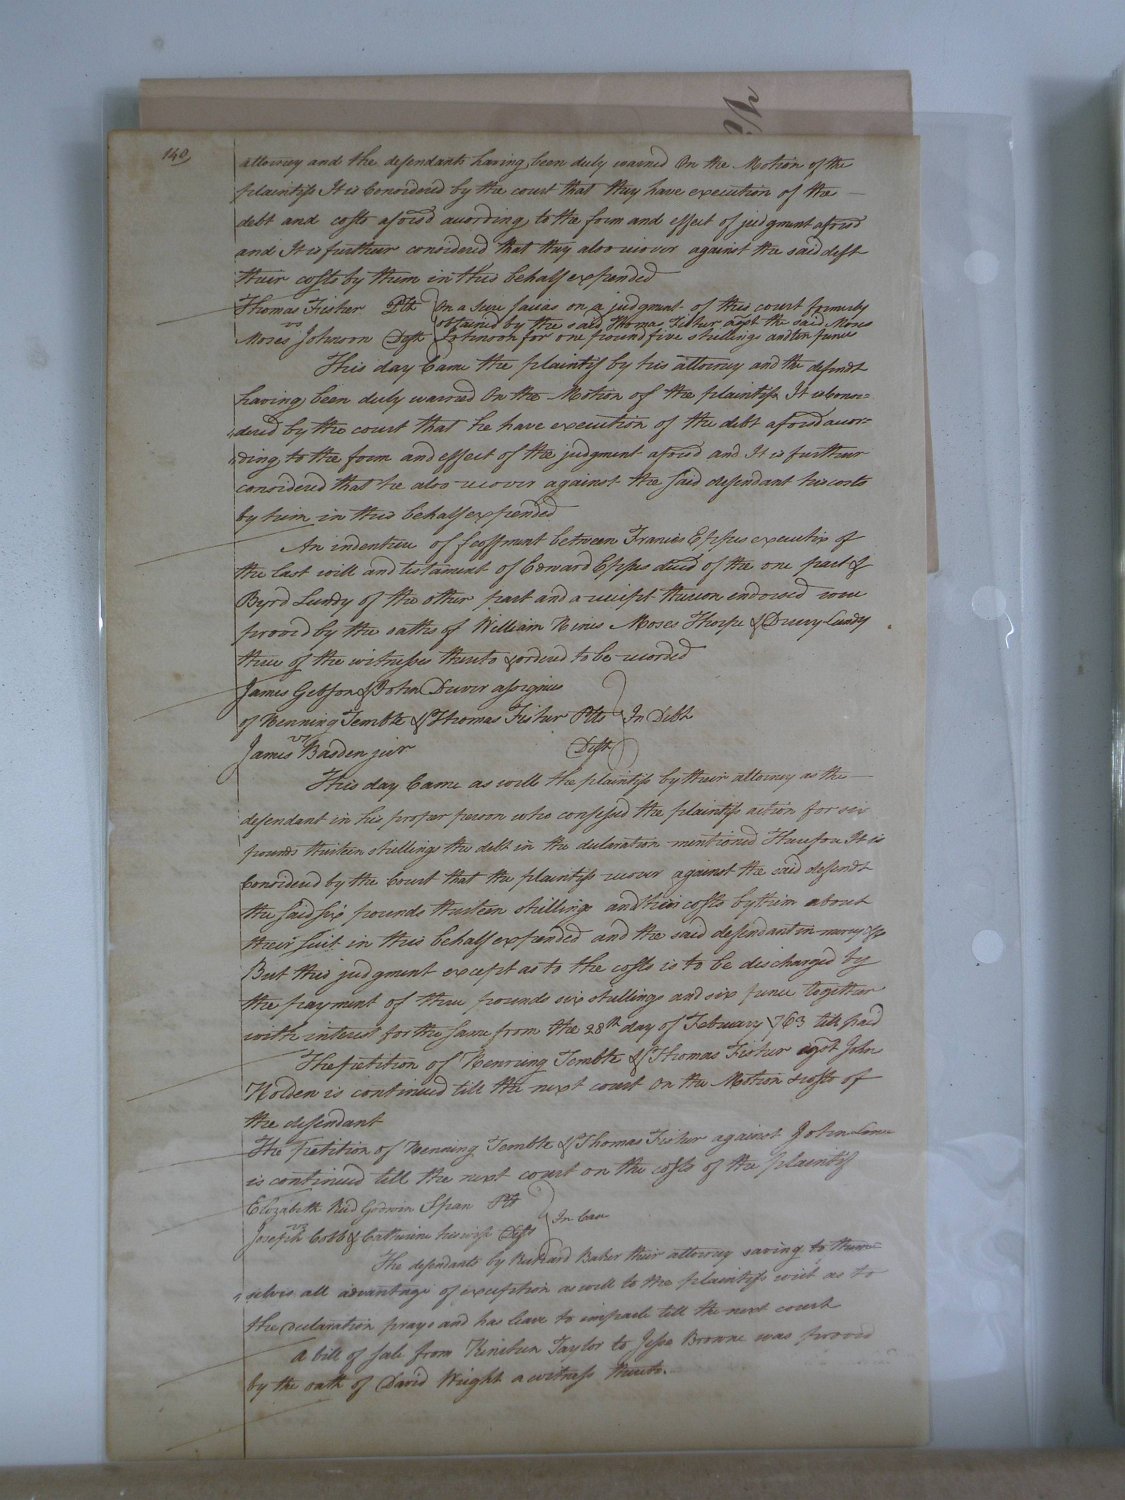 140
attorney and the defendants having been duly warned On the Motion of the
plaintifs It is Considered by the court that they have execution of the
debt and costs aforsd according to the form and effect of judgment aforsd
and It is further considered that they also recover against the said defts
their costs by them in this behalf expended
Thomas Fisher Plt } On a Scire facias on a judgment of this court formerly
vs
obtained by the said Thomas Fisher agst the said Moses
Moses Johnson Deft } Johnson for one pound five shillings and ten pence
This day Came the plaintif by his attorney and the defendt
having been duly warned On the Motion of the plaintif It is Consi-
dered by the court that he have execution of the debt aforsd accor-
ding to the form and effect of the judgment aforsd and It is further
considered that he also recover against the said defendant his costs
by him in this behalf expended
An indenture of feoffment between Francis Eppes executor of
the last will and testament of Edward Eppes decd of the one part &
Byrd Lundy of the other part and a receipt thereon endorsed were
proved by the oaths of William Hines Moses Thorpe & Drury Lundy
three of the witnesses thereto & ordered to be recorded
James Gibson & John Driver assignees
of Henning Tembte & Thomas Fisher Plts } In Debt
vs
James Basden junr Deft
This day Came as well the plaintifs by their attorney as the
defendant in his proper person who confessed the plaintifs action for six
pounds thirteen shillings the debt in the declaration mentioned Therefore It is
Considered by the Court that the plaintifs recover against the said defendt
the said six pounds thirteen shillings and their costs by them about
their suit in this behalf expended and the said defendant in mercy &c
But this judgment except as to the costs is to be discharged by
the payment of three pounds six shillings and six pence together
with interest for the same from the 28th day of February 1763 till paid
The petition of Henning Tembte & Thomas Fisher agst John
Holden is continued till the next court On the Motion & costs of
the defendant
The petition of Henning Tembte & Thomas Fisher against John
is continued till the next court on the costs of the plaintif
Elizabeth Reid Godwin Span Plt
vs } In Case
Joseph Cobb & Catherine his wife Defts
The defendants by Richard Baker their attorney saving to them-
selves all advantage of exception as well to the plaintifs writ as to
the declaration prays and has leave to imparle till the next court
A bill of sale from Kinchen Taylor to Jesse Browne was proved
by the oath of David Wright a witness thereto.